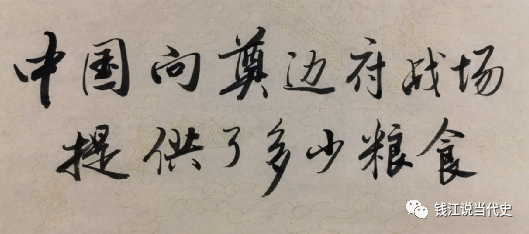 中国向奠边府战场
提供了多少粮食
钱江说当代史